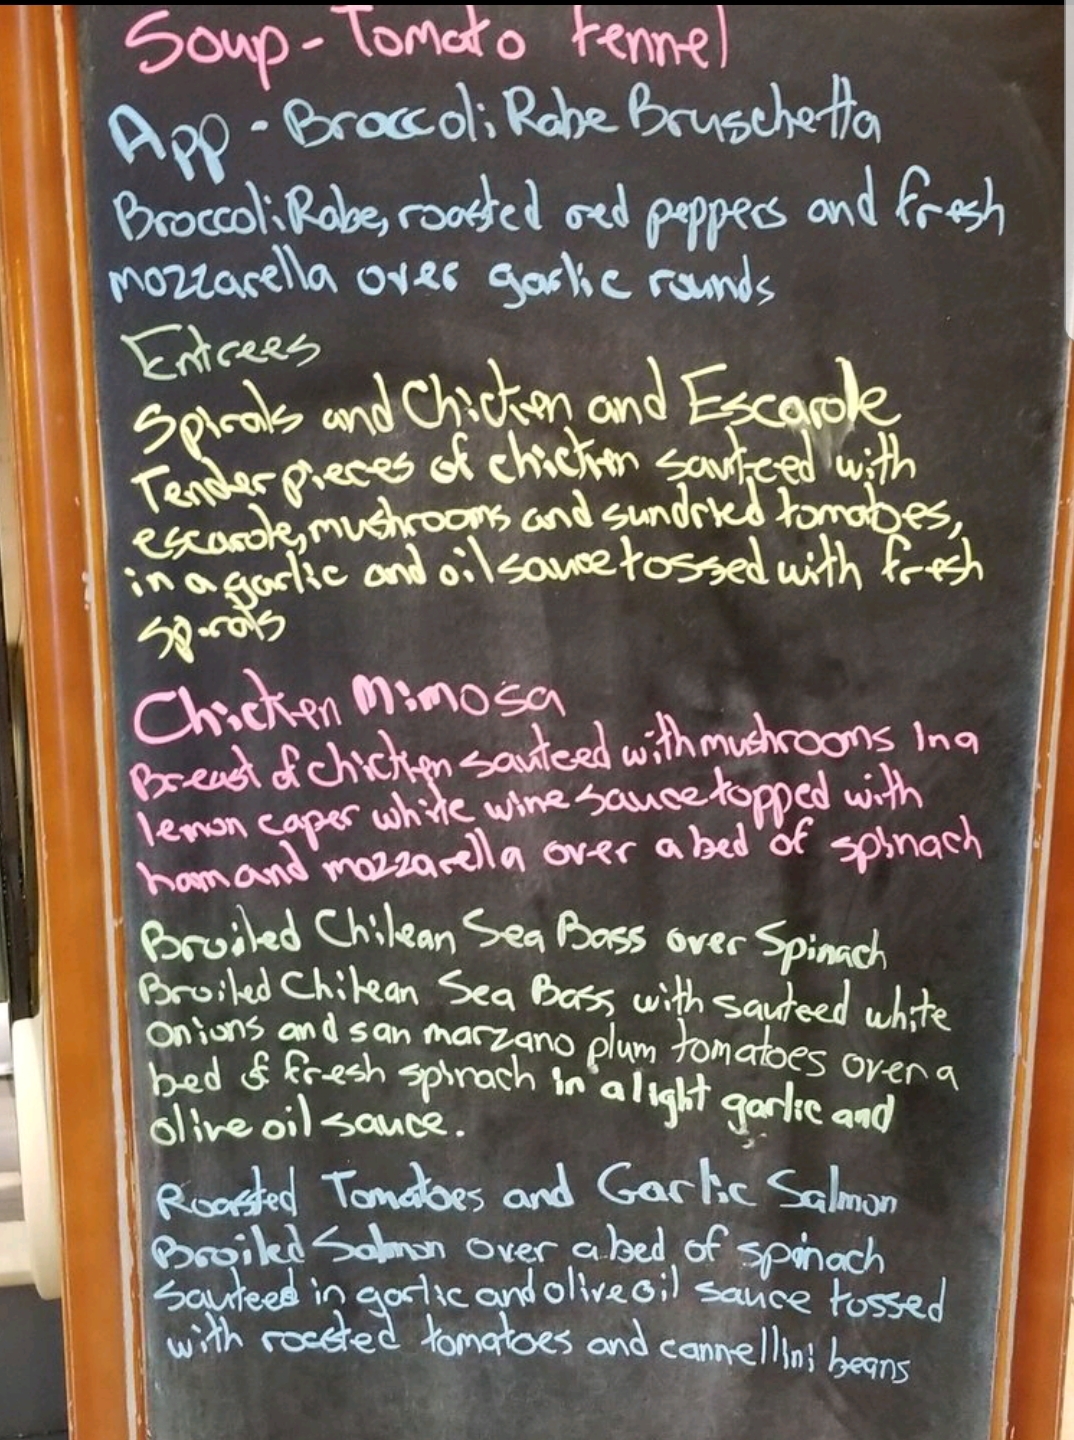 Soup - Tomato Fennel
App - Broccoli Rabe Bruschetta
Broccoli Rabe, roasted red peppers and fresh
mozzarella over garlic rounds
Entrees
Spirals and Chicken and Escarole
Tender pieces of chicken sauteed with
escarole, mushrooms and sundried tomatoes,
in a garlic and oil sauce tossed with fresh
spirals
Chicken Mimosa
Breast of chicken sauteed with mushrooms in a
lemon caper white wine sauce topped with
ham and mozzarella over a bed of spinach
Broiled Chilean Sea Bass over Spinach
Broiled Chilean Sea Bass with sauteed white
onions and san marzano plum tomatoes over a
bed of fresh spinach in a light garlic and
olive oil sauce.
Roasted Tomatoes and Garlic Salmon
Broiled Salmon over a bed of spinach
Sauteed in garlic and olive oil sauce tossed
with roasted tomatoes and cannellini beans